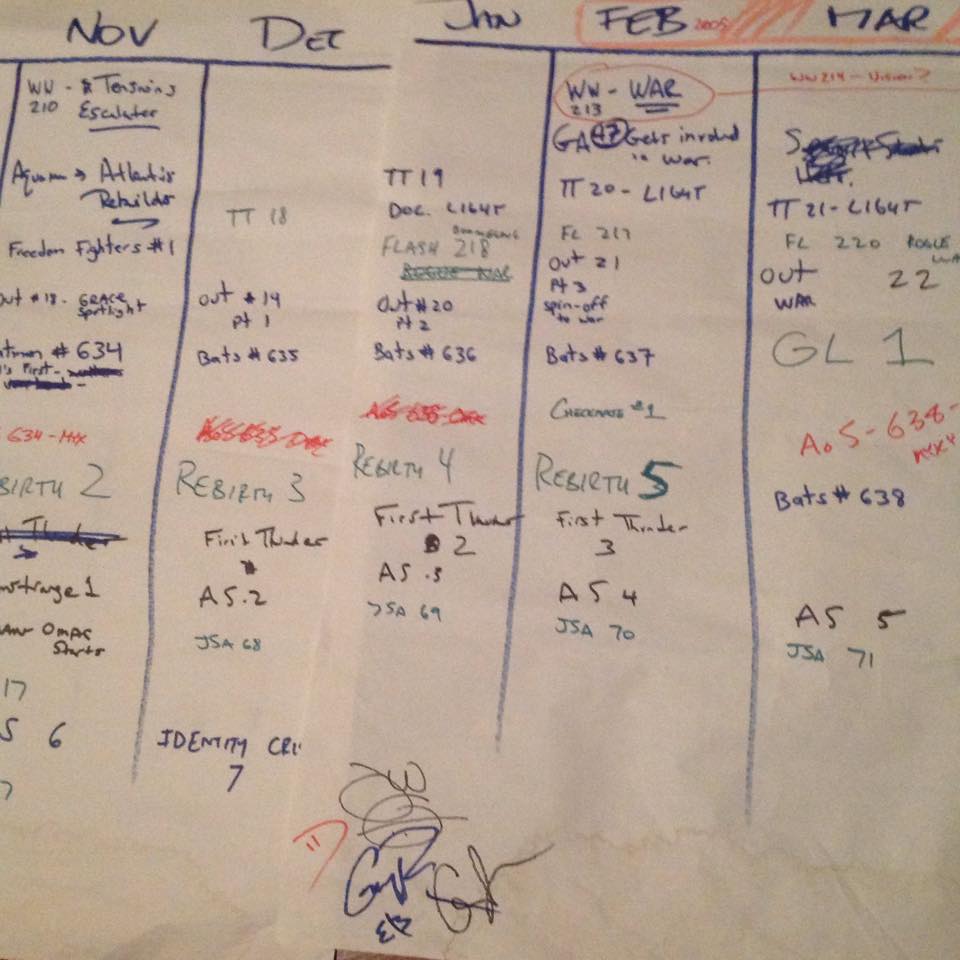 NOV
WW - & Tensions
210 Escalate
Aquaman → Atlantis
Rebuilds
Freedom Fighters #1
Out #18 - GRACE
Spotlight
Batman # 634
634 -
BIRTH 2
1
OMAC
Starts
17
S 6
7
DEC
TT 18
Out # 14
Pt 1
Bats # 635
REBIRTH 3
First Thunder
AS . 2
JSA 68
IDENTITY CRI
7
JAN
TT 19
DOC. LIGHT
FLASH 218
ROGUE WAR
Out #20
Pt 2
Bats # 636
REBIRTH 4
First Thunder
2
AS . 3
JSA 69
FEB 2005
WW - WAR
213
GA 47 Gets involved
in war.
TT 20 - LIGHT
FL 217
Out 21
Pt 3
spin-off
to war
Bats # 637
CHECKMATE #1
REBIRTH 5
First Thunder
3
AS 4
JSA 70
MAR
WW 214 -
TT 21 - LIGHT
FL 220 ROGUE
WA
Out 22
WAR
GL 1
AoS - 638 -
Bats # 638
AS 5
JSA 71